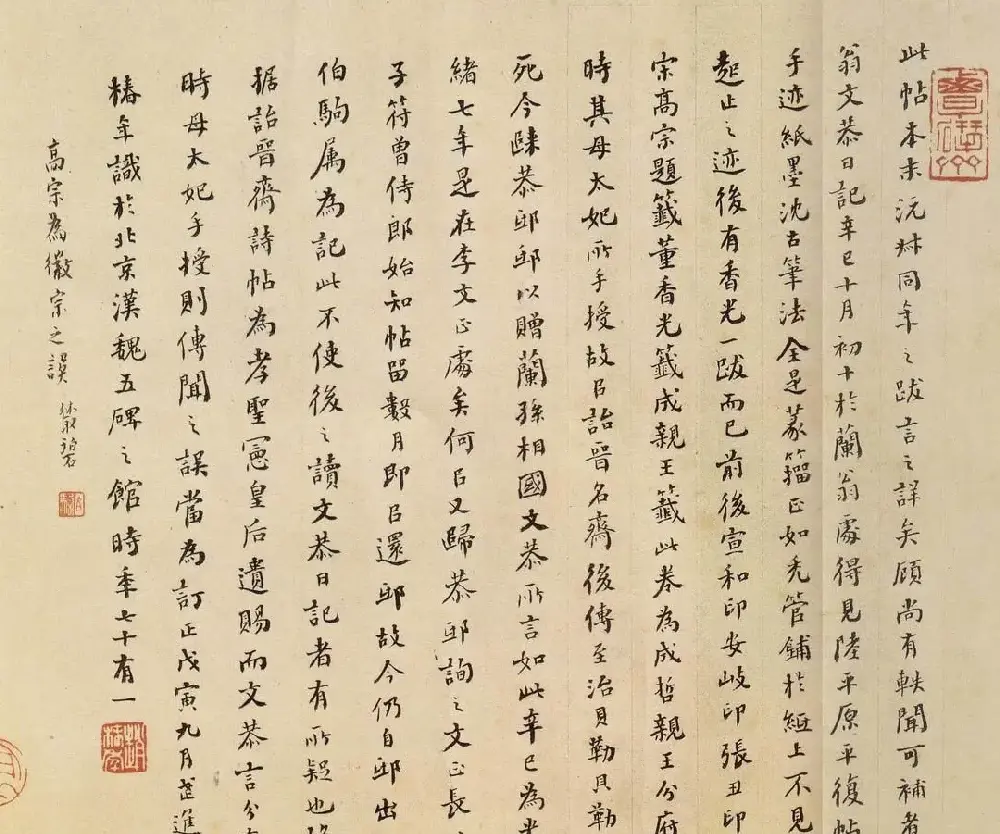 此帖本末沅叔同年之跋言之詳矣顧尚有軼聞可補者
翁文恭日記辛巳十月初十於蘭翁處得見陸平原平復帖
手迹紙墨沈古筆法全是篆籀正如禿管鋪於紙上不見
起止之迹後有香光一跋而已前後宣和印安岐印張丑印
宋高宗題籤董香光籤成親王籤此卷為成哲親王分府
時其母太妃所手授故以詒晉名齋後傳至治貝勒貝勒
死今歸恭邸邸以贈蘭孫相國文恭所言如此辛巳為光
緒七年是在李文正處矣何以又歸恭邸詢之文正長
子符曾侍郎始知帖留數月即以還邸故今仍自邸出
伯駒属為記此不使後之讀文恭日記者有所疑也
据詒晉齋詩帖為孝聖憲皇后遺賜而文恭言分
時母太妃手授則傳聞之誤當為訂正戊寅九月武進
椿年識於北京漢魏五碑之館時年七十有一
高宗為徽宗之誤